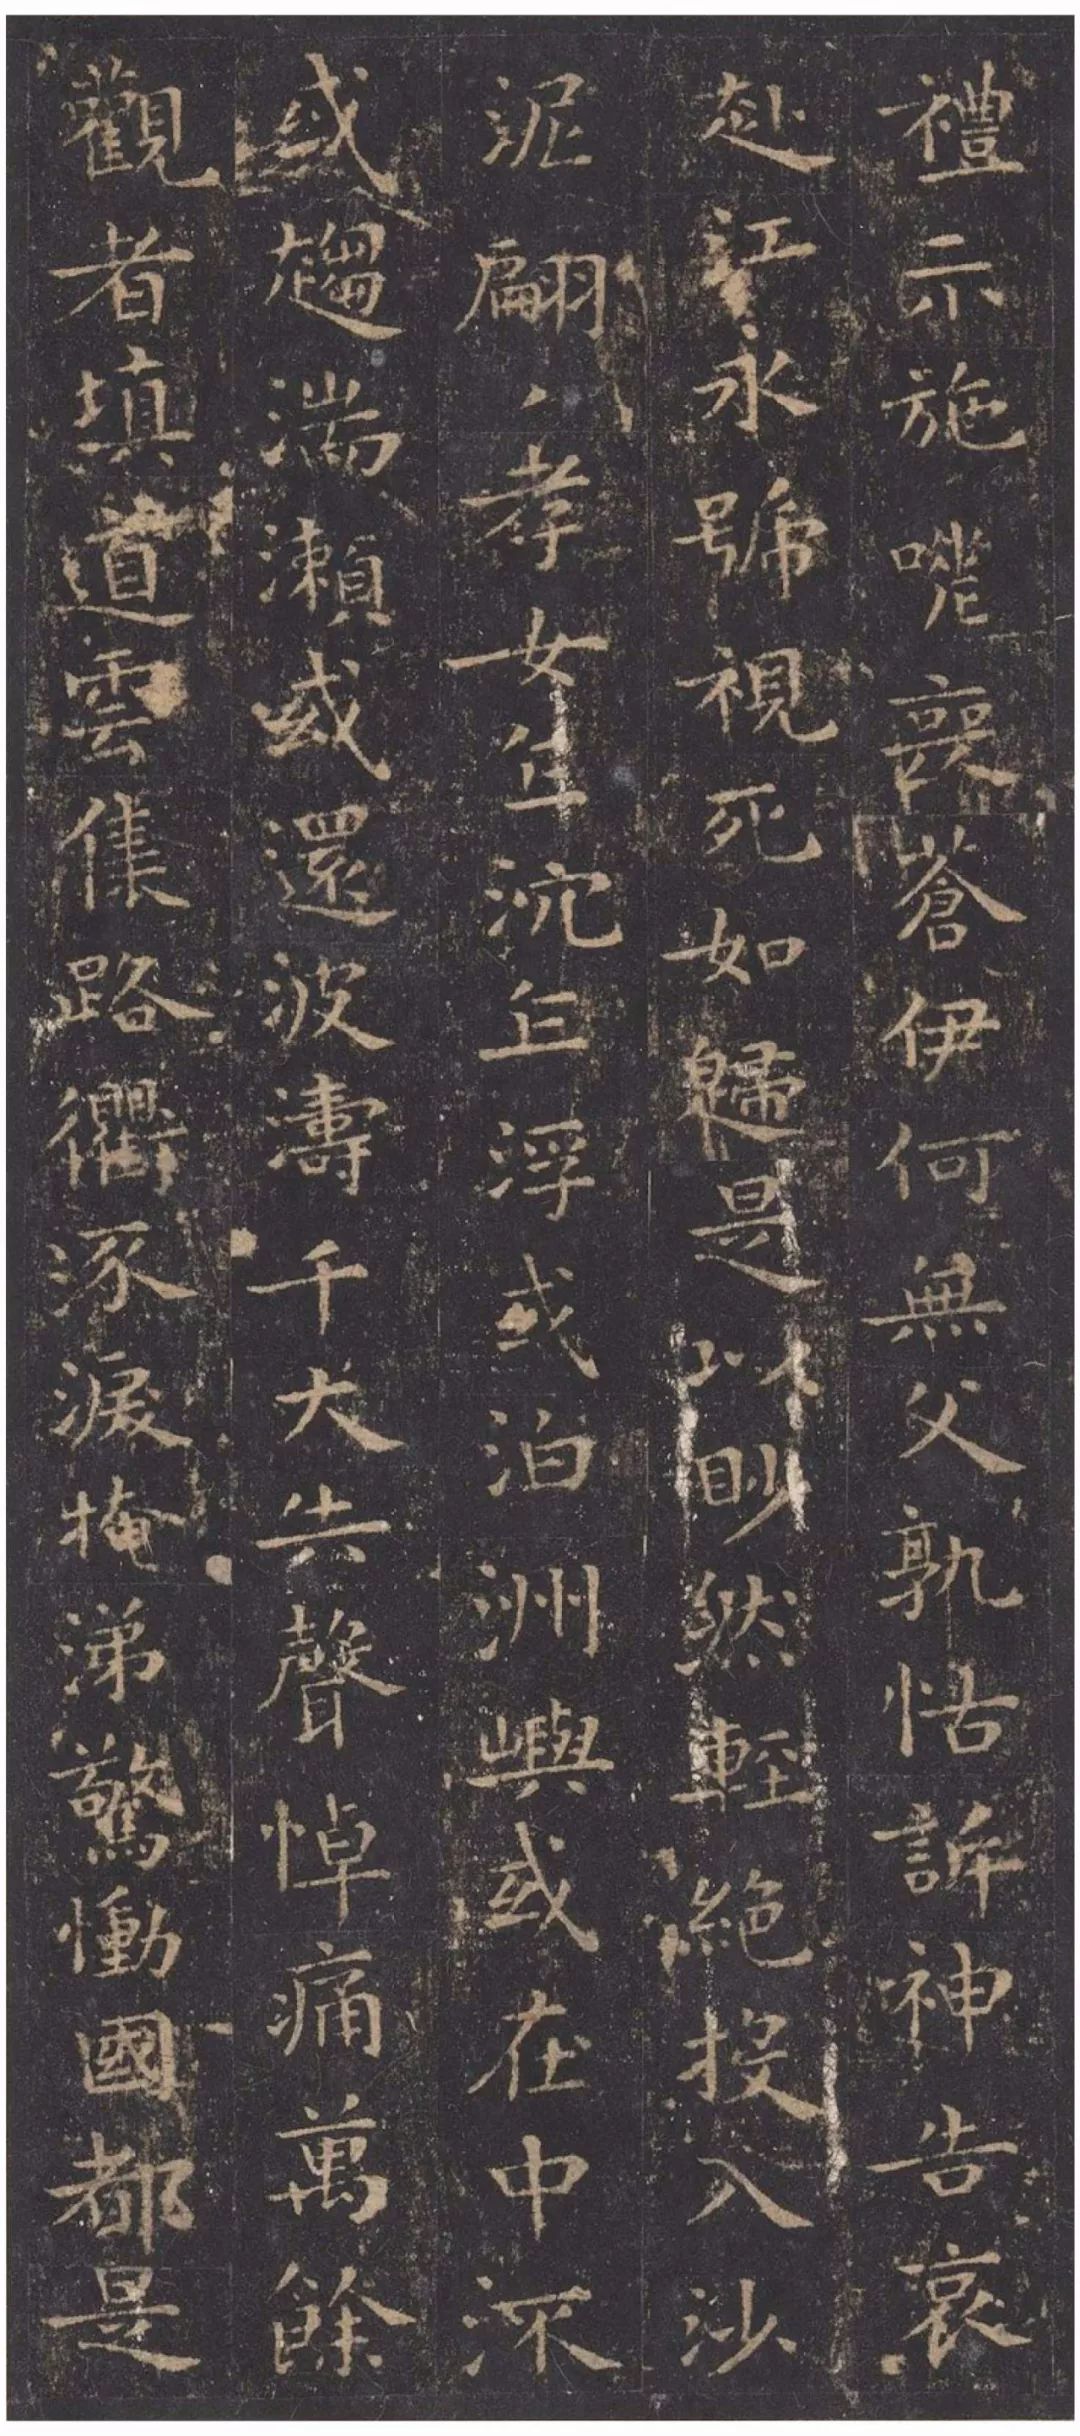 禮未施嗟喪蒼伊何無父孰怙訴神告哀
赴江永號視死如歸是以眇然輕絕投入沙
泥翩〻孝女乍沉乍浮或泊洲嶼或在中流
或趨湍瀨或還波濤千夫失聲悼痛萬餘
觀者填道雲集路衢流淚掩涕驚慟國都是